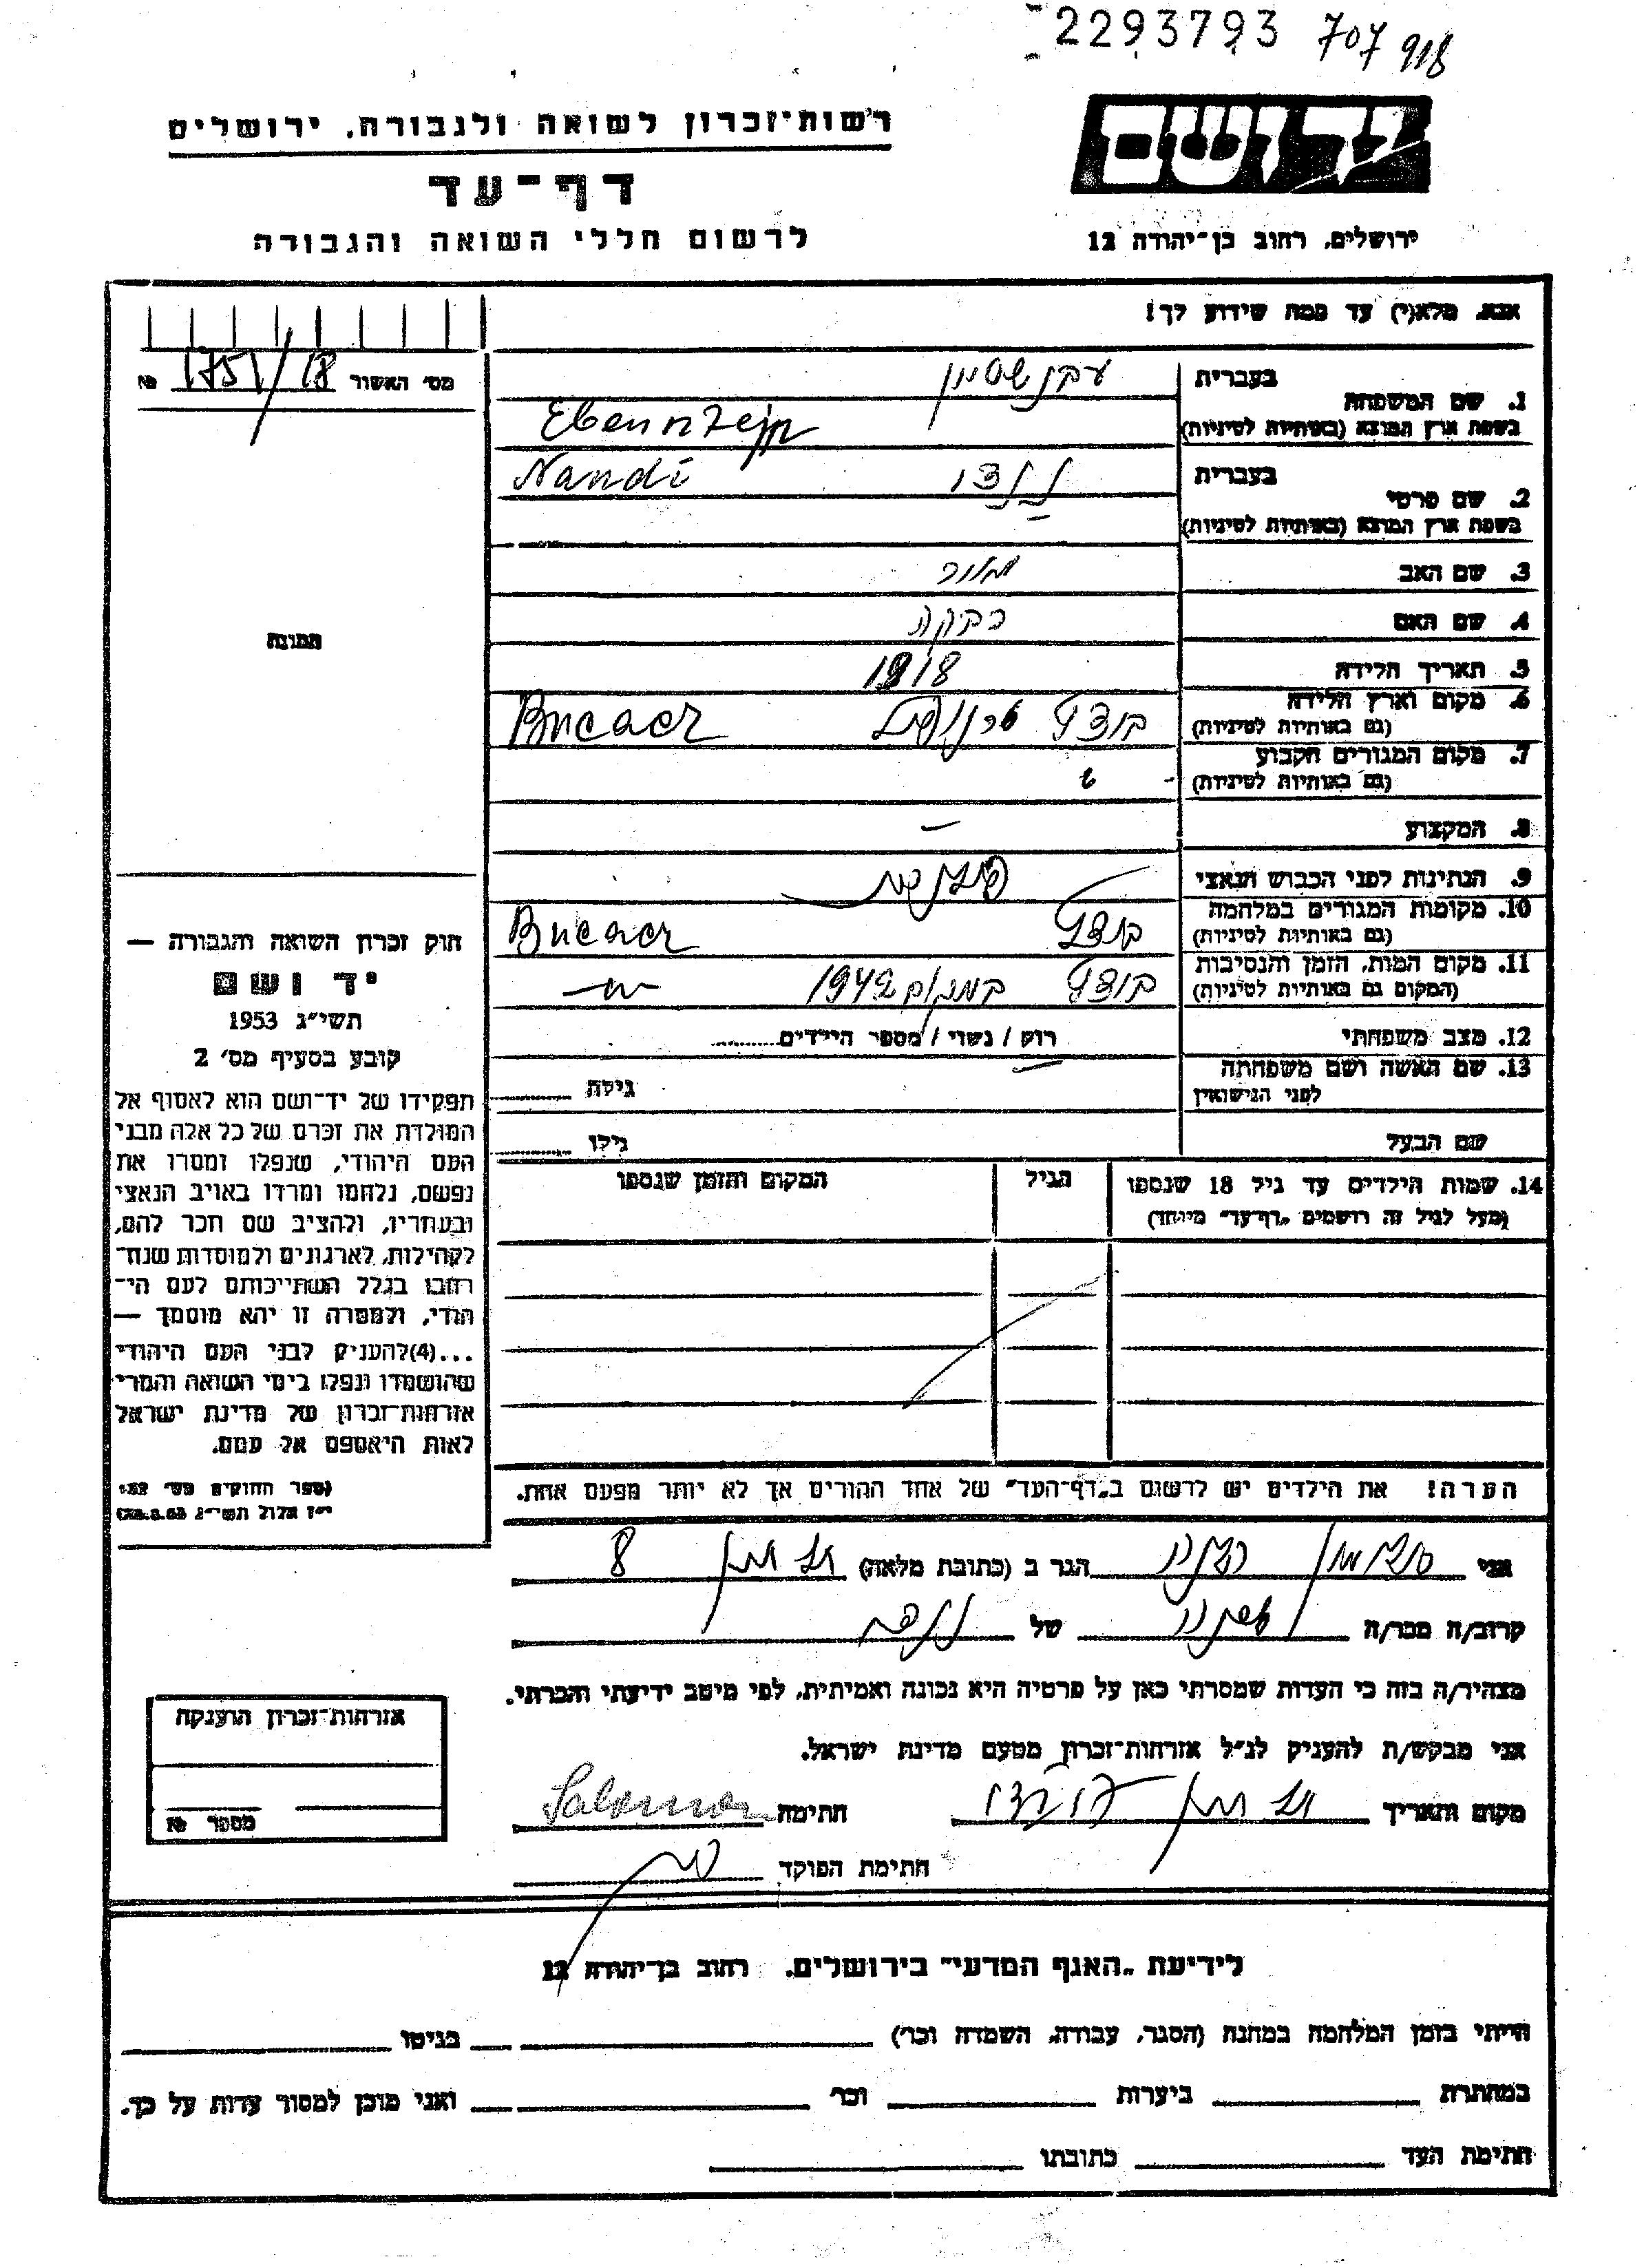 2293793 707 918
יד ושם
רשות־זכרון לשואה ולגבורה, ירושלים
דף־עד
לרשום חללי השואה והגבורה
ירושלים, רחוב בן־יהודה 12
אנא, מלא(י) עד כמה שידוע לך!
מס׳ האשור 1751/18 №
1. שם המשפחה
בעברית עבנשטיין
בשפת ארץ המוצא (באותיות לטיניות) Ebensztejn
2. שם פרטי
בעברית Nandi
בשפת ארץ המוצא (באותיות לטיניות) –
3. שם האב מאיר
4. שם האם רבקה
5. תאריך הלידה 1918
6. מקום וארץ הלידה
(גם באותיות לטיניות) Bucacz
7. מקום המגורים הקבוע
(גם באותיות לטיניות)
8. המקצוע –
9. הנתינות לפני הכבוש הנאצי פולנית
10. מקומות המגורים במלחמה
(גם באותיות לטיניות) Bucacz
11. מקום המות, הזמן והנסיבות
(המקום גם באותיות לטיניות) 1942
12. מצב משפחתי רוק / נשוי / מספר הילדים
13. שם האשה ושם משפחתה
לפני הנישואין גילה
שם הבעל גילו
14. שמות הילדים עד גיל 18 שנספו
(מעל לגיל זה רושמים „דף־עד” מיוחד)
הגיל
המקום והזמן שנספו
הערה! את הילדים יש לרשום ב„דף־העד” של אחד ההורים אך לא יותר מפעם אחת.
תמונה
חוק זכרון השואה והגבורה —
יד ושם
תשי״ג 1953
קובע בסעיף מס׳ 2
תפקידו של יד־ושם הוא לאסוף אל
המולדת את זכרם של כל אלה מבני
העם היהודי, שנפלו ומסרו את
נפשם, נלחמו ומרדו באויב הנאצי
ובעוזריו, ולהציב שם וזכר להם,
לקהילות, לארגונים ולמוסדות שנח־
רבו בגלל השתייכותם לעם הי־
הודי, ולמטרה זו יהא מוסמך —
...(4)להעניק לבני העם היהודי
שהושמדו ונפלו בימי השואה והמרי
אזרחות־זכרון של מדינת ישראל
לאות היאספם אל עמם.
(ספר החוקים מס׳ 132
י״ז אלול תשי״ג 28.8.53)
אני הגר ב (כתובת מלאה) 8
קרוב/ה מכר/ה של
מצהיר/ה בזה כי העדות שמסרתי כאן על פרטיה היא נכונה ואמיתית, לפי מיטב ידיעתי והכרתי.
אני מבקש/ת להעניק לנ״ל אזרחות־זכרון מטעם מדינת ישראל.
מקום ותאריך חתימה Salomon
חתימת הפוקד
אזרחות־זכרון הוענקה
מספר №
לידיעת „האגף המדעי” בירושלים, רחוב בן־יהודה 12
הייתי בזמן המלחמה במחנה (הסגר, עבודה, השמדה וכר׳) בגיטו
במחתרת ביערות וכר׳ ואני מוכן למסור עדות על כך.
חתימת העד כתובתו